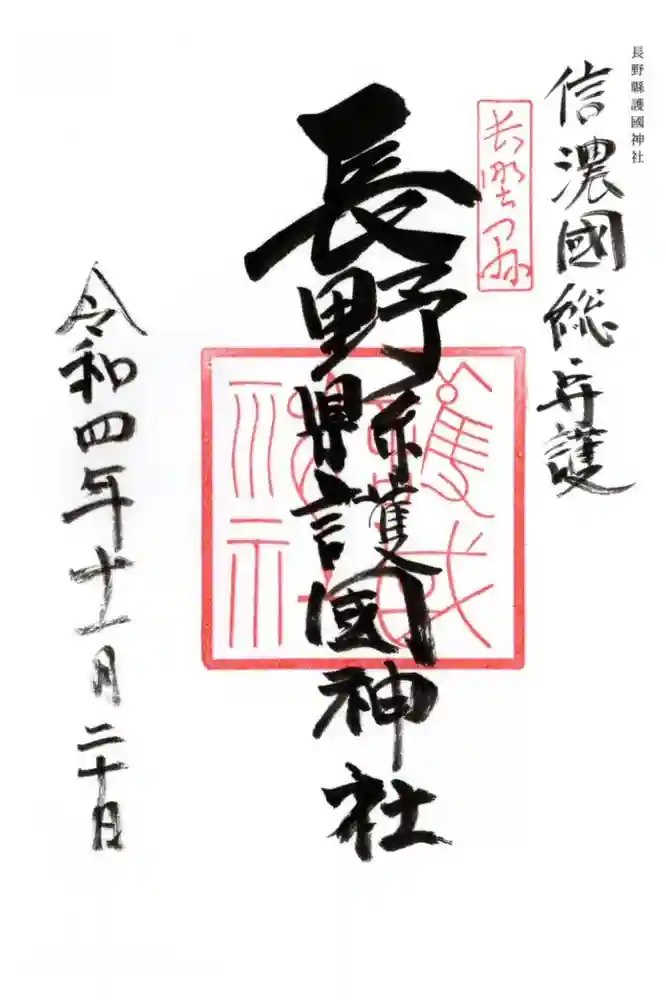 長野縣護國神社
信濃國総弁護
長野县
長野縣護國神社
護國神社
令和四年十一月二十日